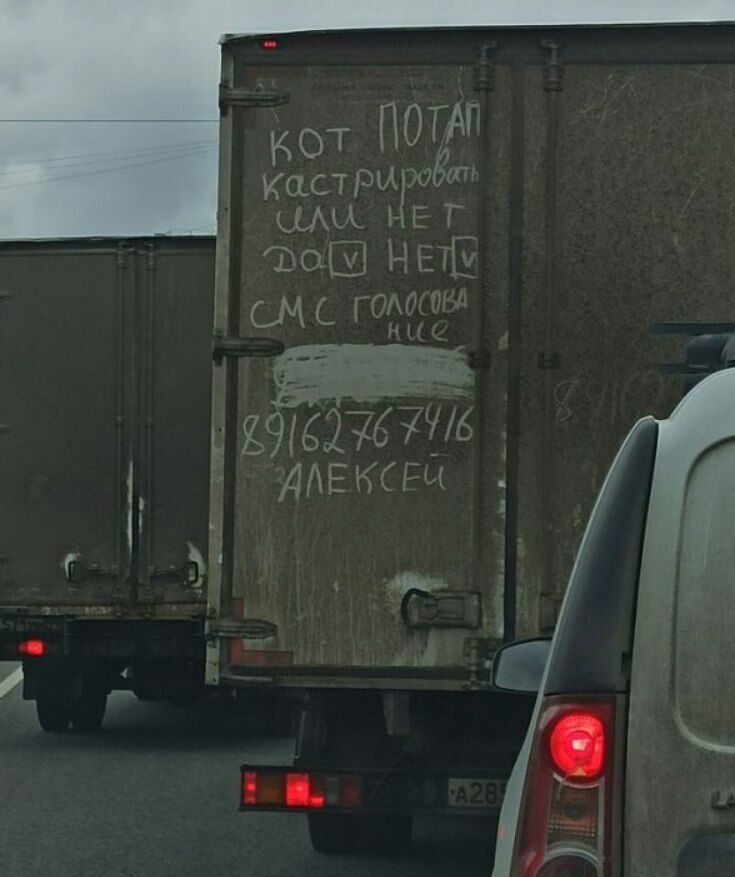 КОТ ПОТАП
кастрировать
или НЕТ
Да V НЕТ V
СМС ГОЛОСОВА
ние
89162767416
АЛЕКСЕЙ
А285